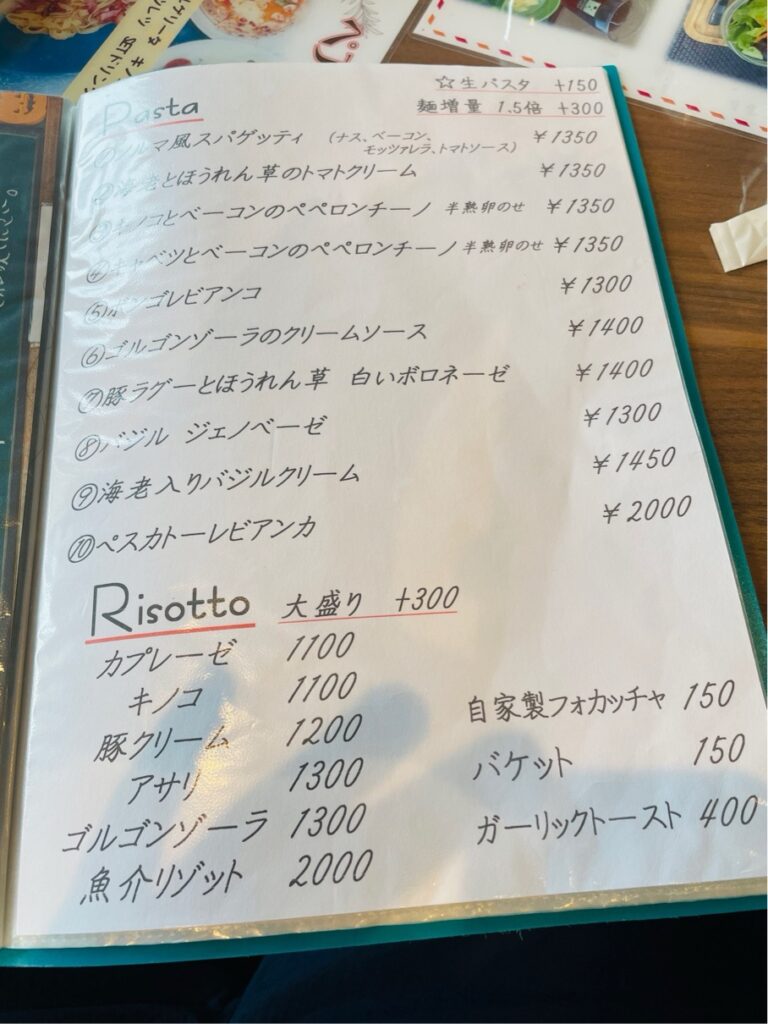 ☆生パスタ +150
Pasta
麺増量 1.5倍 +300
ノルマ風スパゲッティ (ナス、ベーコン、 ¥1350
モッツァレラ、トマトソース)
②海老とほうれん草のトマトクリーム ¥1350
③キノコとベーコンのペペロンチーノ 半熟卵のせ ¥1350
④キャベツとベーコンのペペロンチーノ 半熟卵のせ ¥1350
⑤ボンゴレビアンコ ¥1300
⑥ゴルゴンゾーラのクリームソース ¥1400
⑦豚ラグーとほうれん草 白いボロネーゼ ¥1400
⑧バジル ジェノベーゼ ¥1300
⑨海老入りバジルクリーム ¥1450
⑩ペスカトーレビアンカ ¥2000
Risotto 大盛り +300
カプレーゼ 1100
キノコ 1100
豚クリーム 1200
アサリ 1300
ゴルゴンゾーラ 1300
魚介リゾット 2000
自家製フォカッチャ 150
バケット 150
ガーリックトースト 400